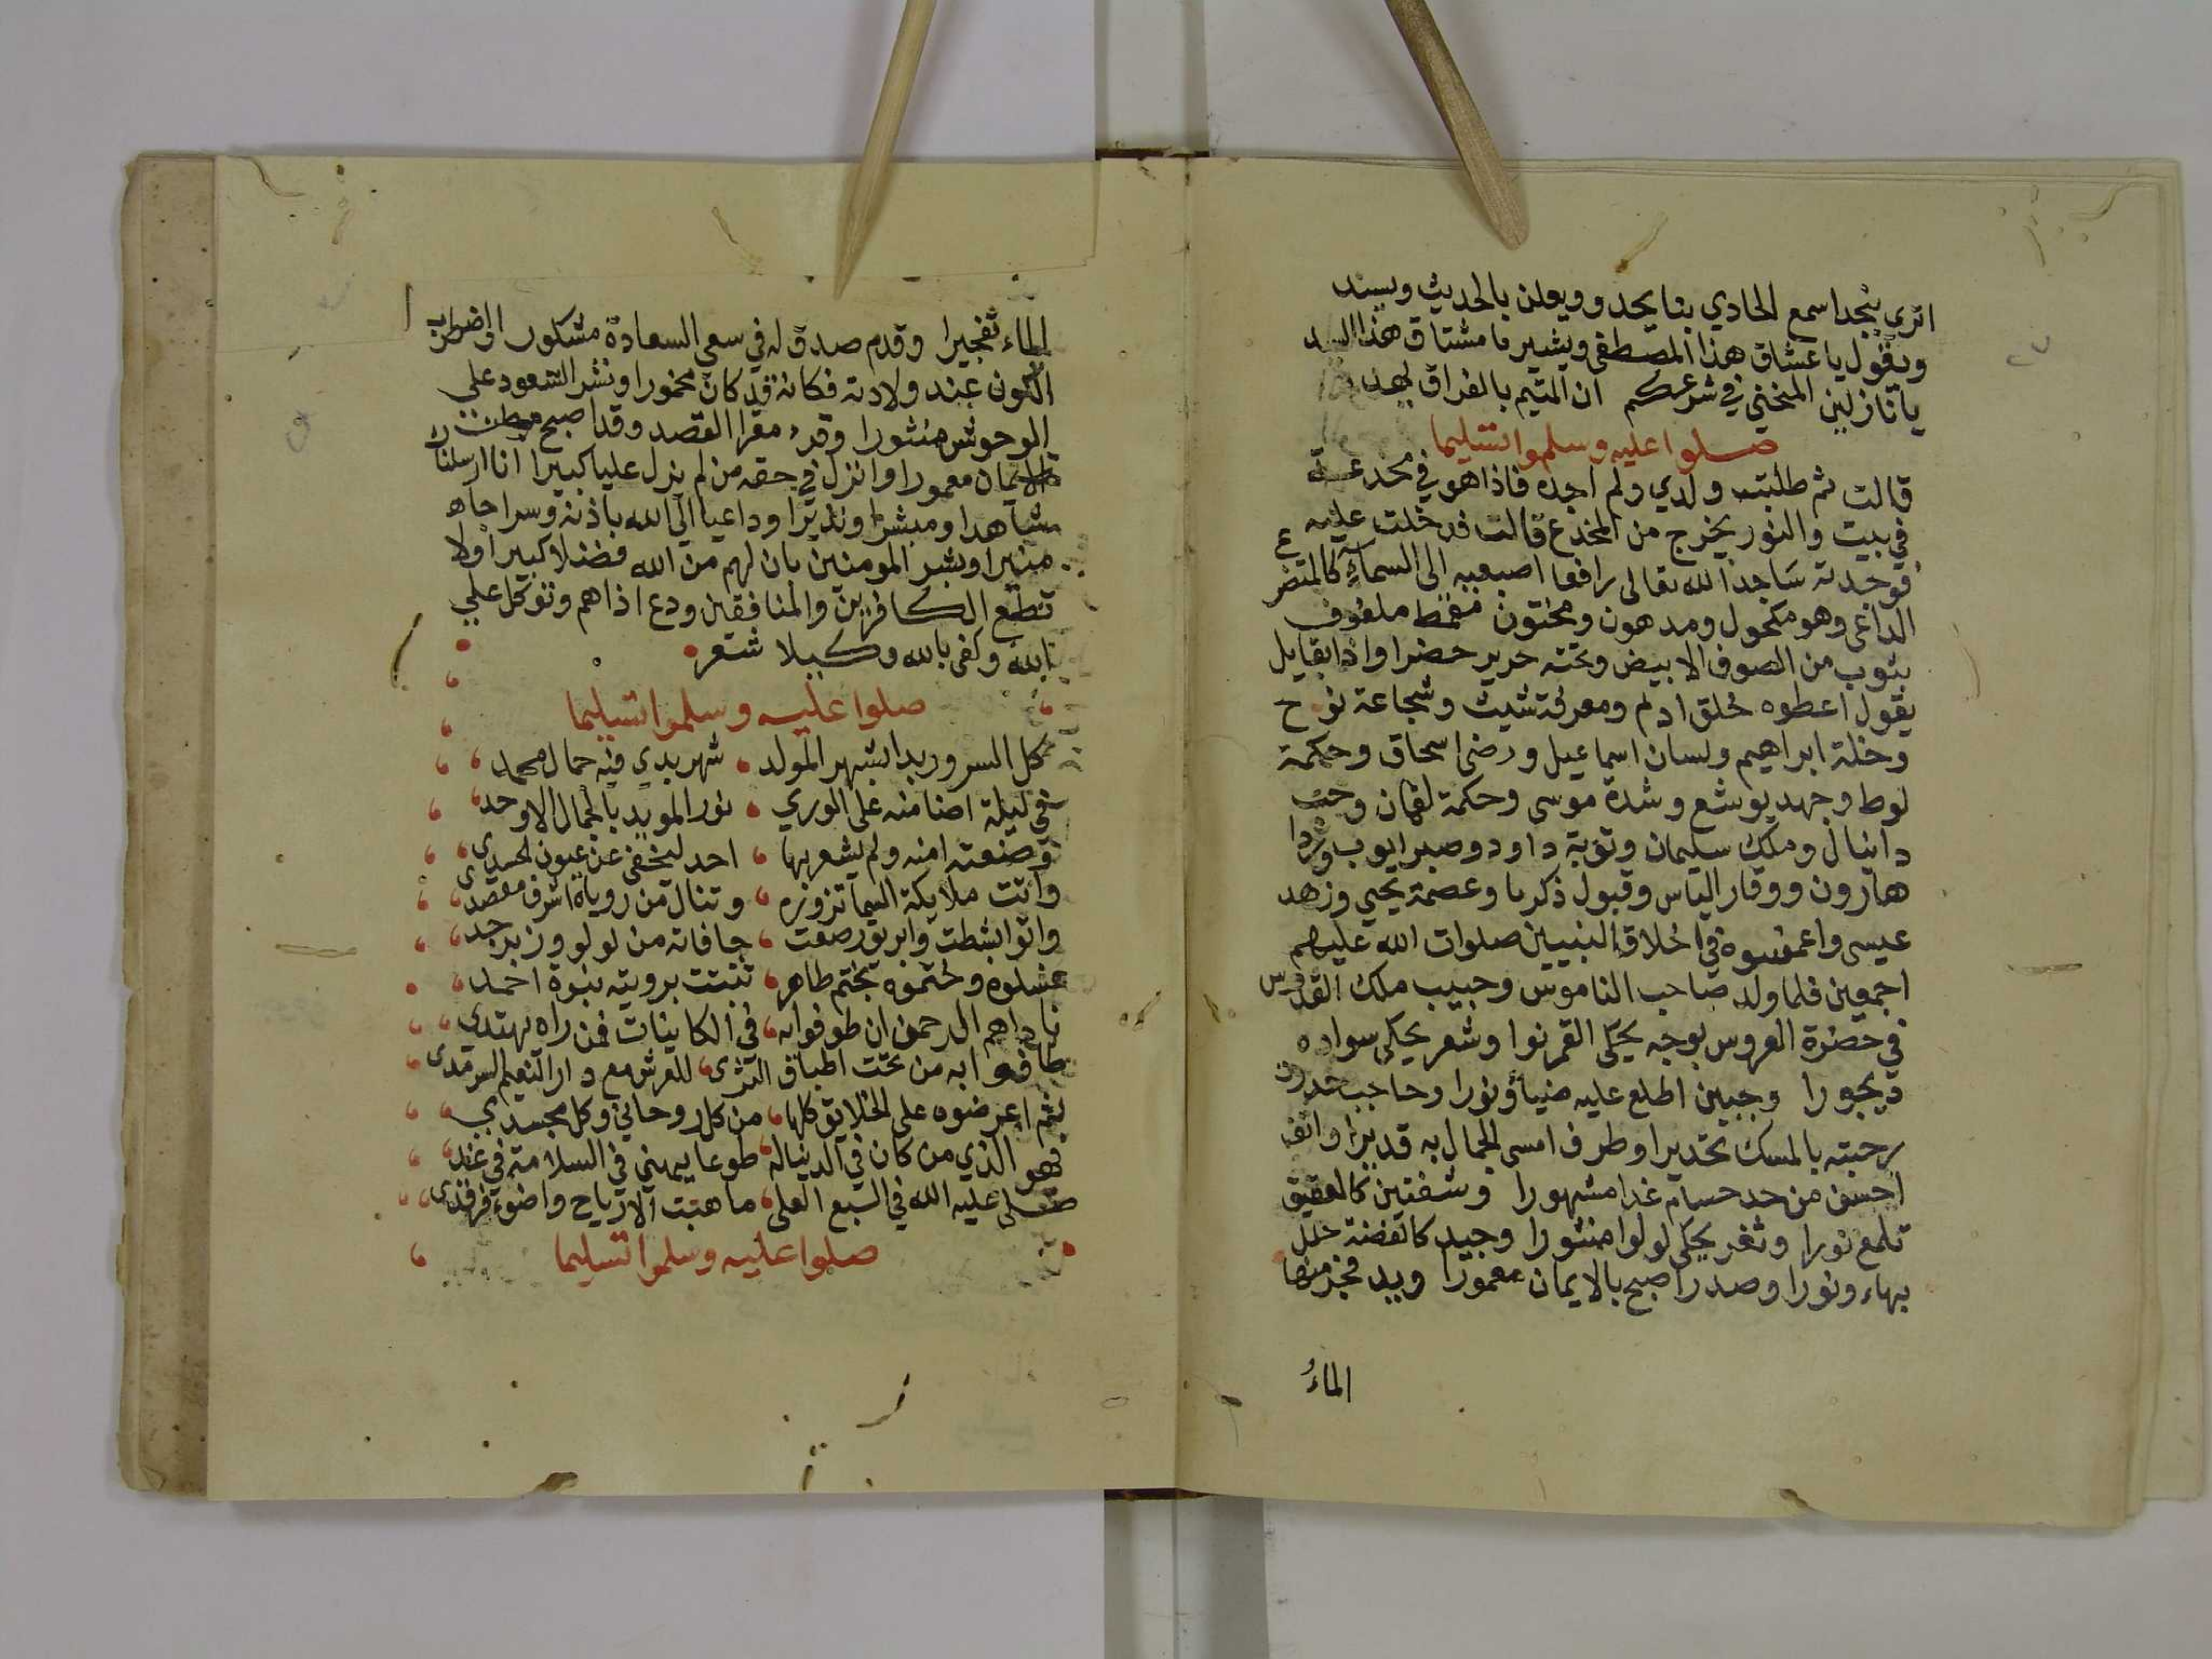 اتري بنجد اسمع الحادي بنا يحدو ويعلن بالحديث ويسند
ويقول يا عشاق هذا المصطفي ويشير يا مشتاق هذا السيد
يا نازلين المنحني في شرعكم ان المتيم بالفراق
صلوا عليه وسلموا تسليما
قالت ثم طلبت ولدي ولم اجده فاذا هو في مخدعه
في بيت والنور يخرج من المخدع قالت فدخلت عليه
فوجدته ساجدا لله تعالى رافعا اصبعيه الى السماء كالمتضرع
الداعي وهو مكحول ومدهون ومختون مقمط ملفوف
بثوب من الصوف الابيض وتحته حرير خضرا واذا بقايل
يقول اعطوه خلق ادم ومعرفة شيث وشجاعة نوح
وخلة ابراهيم ولسان اسماعيل ورضى اسحاق وحكمة
لوط وجهد يوشع وشدة موسى وحكمة لقمان وحب
دانيال وملك سليمان وتوبة داود وصبر ايوب
هارون ووقار الياس وقبول ذكريا وعصمة يحيي وزهد
عيسى واغمسوه في اخلاق النبيين صلوات الله عليهم
اجمعين فلما ولد صاحب الناموس وحبيب ملك القدوس
في حضرة العروس بوجه يحكي القمر نورا وشعر يحكي سواده
ديجورا وجبين اطلع عليه ضياؤ نورا وحاجب
بالمسك تحديرا وطرف امسى الجمال به قديرا وانف
احسن من حد حسام غدا مشهورا وشفتين كالعقيق
تلمع نورا وثغر يحكي لولوا منثورا وجيد كالفضة
بهاء ونورا وصدر اصبح بالايمان معمورا ويد فجر منها
الماء
الماء تفجيرا وقدم صدق له في سعي السعادة مشكورا واضطرب
الكون عند ولادته فكانه قد كان مخمورا ونشر السعود على
الوحوش منثورا وقد اصبح
الايمان معمورا وانزل في حقه من لم يزل عليا كبيرا انا ارسلناك
شاهدا ومبشرا ونذيرا وداعيا الي الله باذنه وسراجا
منيرا وبشر المومنين بان لهم من الله فضلا كبيرا ولا
تطع الكافرين والمنافقين ودع اذاهم وتوكل علي
الله وكفى بالله وكيلا شعر
صلوا عليه وسلموا تسليما
كل السرور بدا بشهر المولد شهر بدي فيه جمال محمد
في ليلة اضا منه على الوري نور المويد بالجمال الاوحد
وضعته امنه ولم يشعر بها احد ليخفي عن عيون الحسدي
واتت ملايكة السما تزوره وتنال من روياه اشرف مقصد
واتوا بشطت وابريق رصعت حافاته من لولو وزبرجد
غسلوه وختموه بختم طاهر ثبتت برويته نبوة احمد
ناداهم الرحمن ان طوفوا به في الكاينات فمن راه يهتدي
طافوا به من تحت اطباق الثرى للعرش مع دار النعيم السرمدى
ثم اعرضوه على الخلايق كلها من كل روحاني وكل مجسدي
فهو الذي من كان في الدنيا له طوعا يهني في السلامة في غد
صلى عليه الله في السبع العلى ما هبت الارياح واضوء فرقدي
صلوا عليه وسلموا تسليما